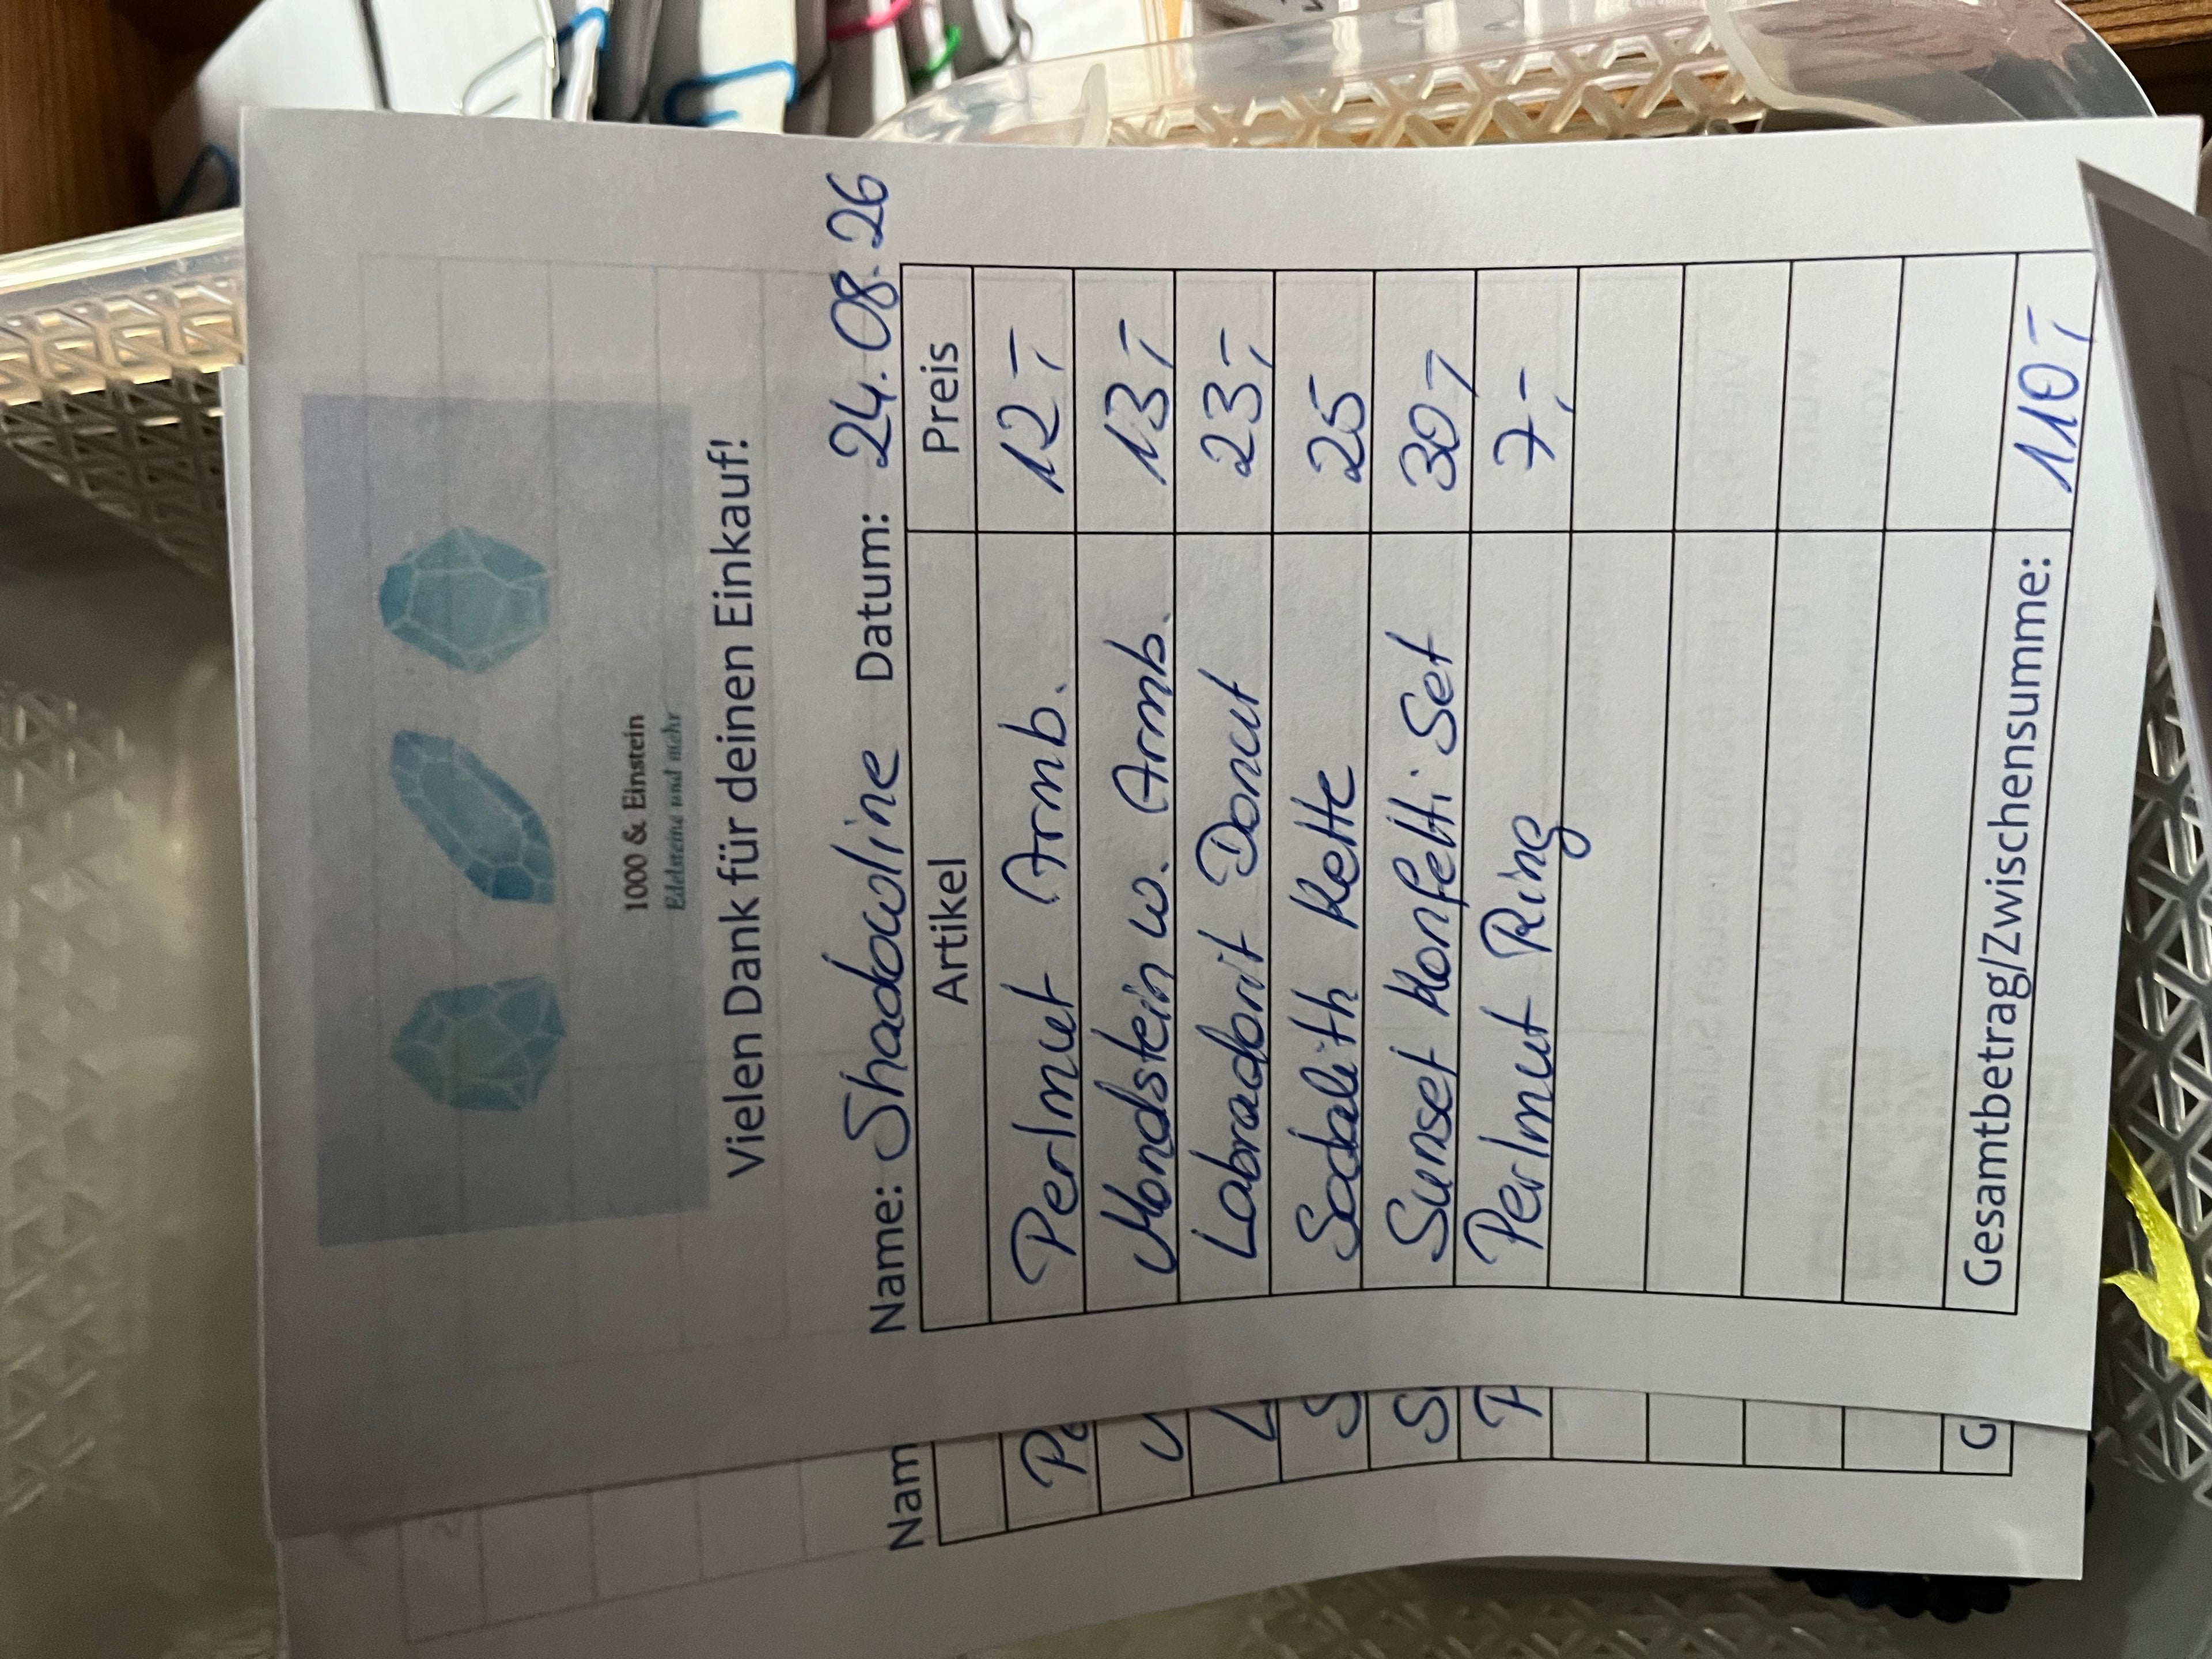 1000 & Einstein
Edelsteine und mehr
Vielen Dank für deinen Einkauf!
Name: Shadowline Datum: 24.08.26
Artikel Preis
Perlmut Armb. 12,-
Mondstein w. Armb. 13,-
Labradorit Donut 23,-
Sodalith Kette 25
Sunset Konfetti Set 30,-
Perlmut Ring 7,-
Gesamtbetrag/Zwischensumme: 110,-
Nam
Pe
M
L
S
S
P
G